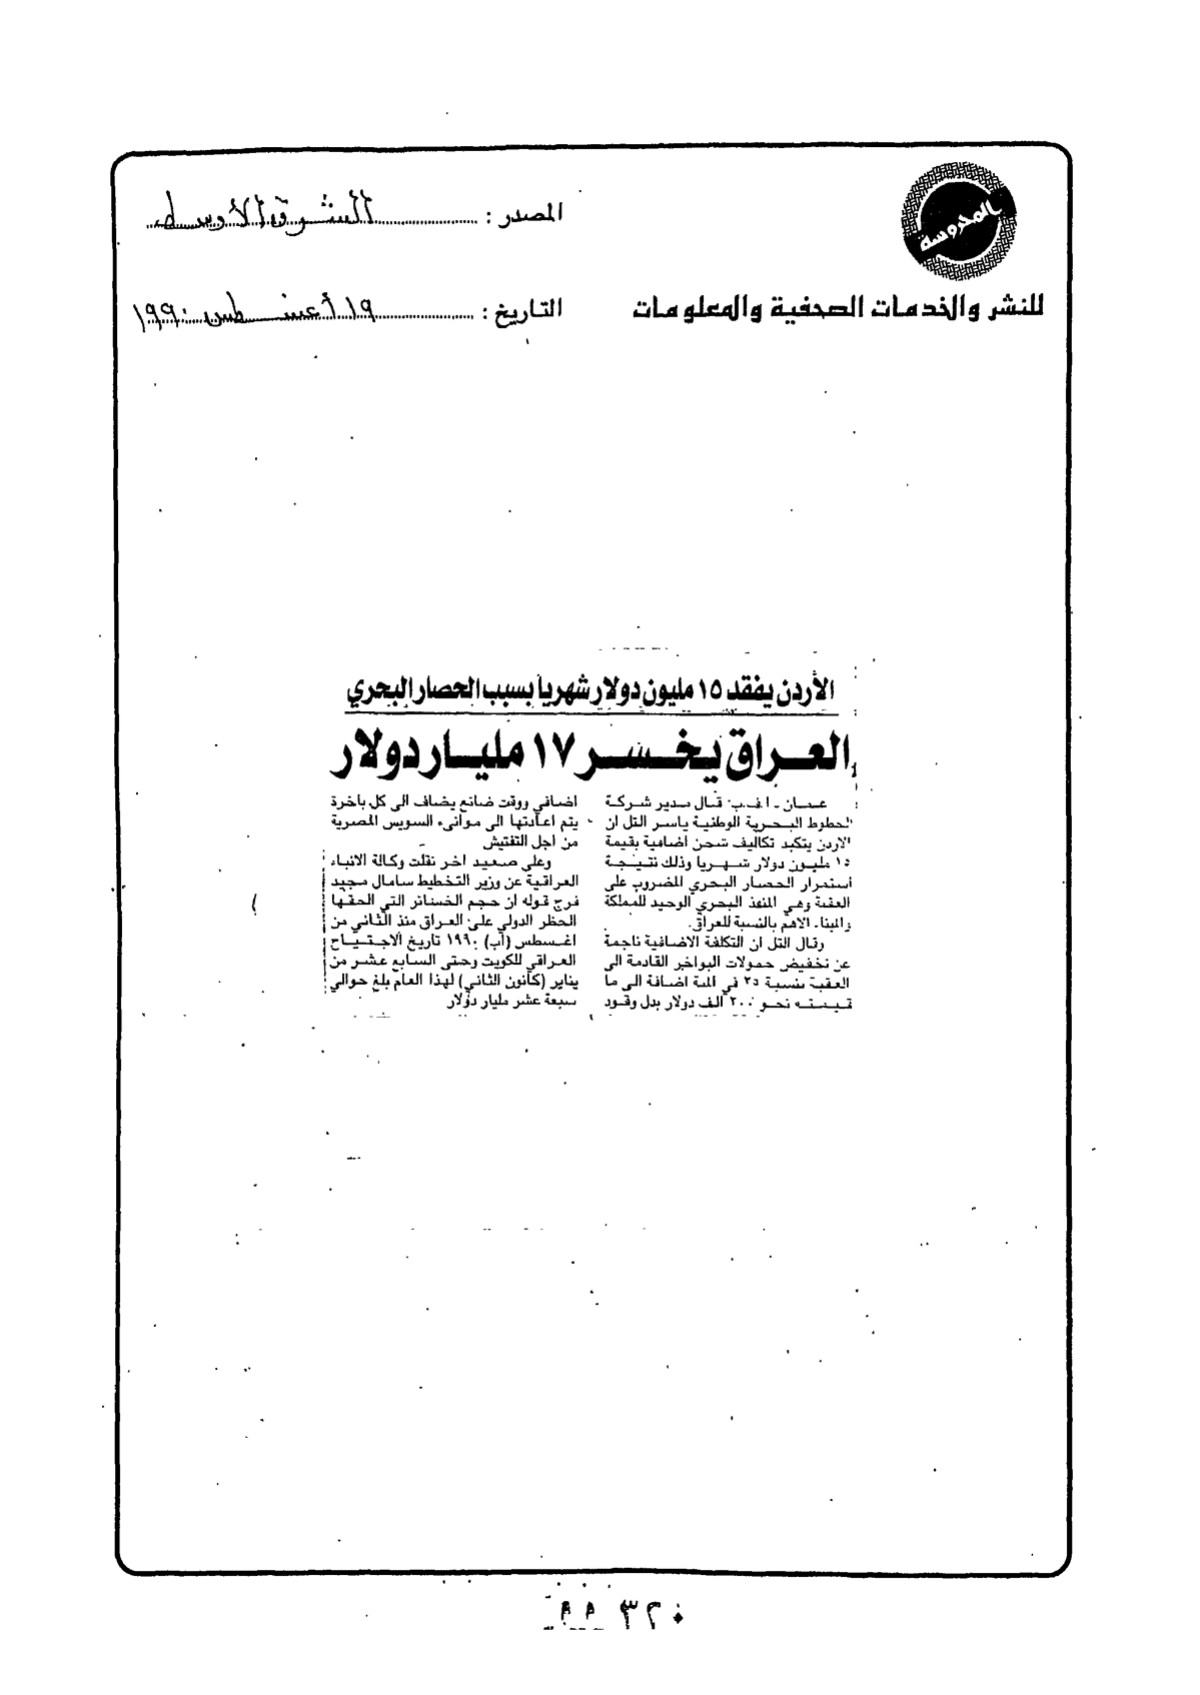 بالمحروسة
للنشر والخدمات الصحفية والمعلومات
المصدر : الشرق الأوسط
التاريخ : ١٩ أغسطس ١٩٩٠
الأردن يفقد ١٥ مليون دولار شهرياً بسبب الحصار البحري
العراق يخسر ١٧ مليار دولار
عمان - ا ف ب: قال مدير شركة
الخطوط البحرية الوطنية ياسر التل ان
الاردن يتكبد تكاليف شحن اضافية بقيمة
١٥ مليون دولار شهريا وذلك نتيجة
استمرار الحصار البحري المضروب على
العقبة وهي المنفذ البحري الوحيد للمملكة
والميناء الاهم بالنسبة للعراق.
وقال التل ان التكلفة الاضافية ناجمة
عن تخفيض حمولات البواخر القادمة الى
العقبة بنسبة ٢٥ في المئة اضافة الى ما
قيمته نحو ٢٠٠ الف دولار بدل وقود
اضافي ووقت ضائع يضاف الى كل باخرة
يتم اعادتها الى موانىء السويس المصرية
من اجل التفتيش
وعلى صعيد اخر نقلت وكالة الانباء
العراقية عن وزير التخطيط سامال مجيد
فرج قوله ان حجم الخسائر التي الحقها
الحظر الدولي على العراق منذ الثاني من
اغسطس (آب) ١٩٩٠ تاريخ الاجتياح
العراقي للكويت وحتى السابع عشر من
يناير (كانون الثاني) لهذا العام بلغ حوالي
سبعة عشر مليار دولار